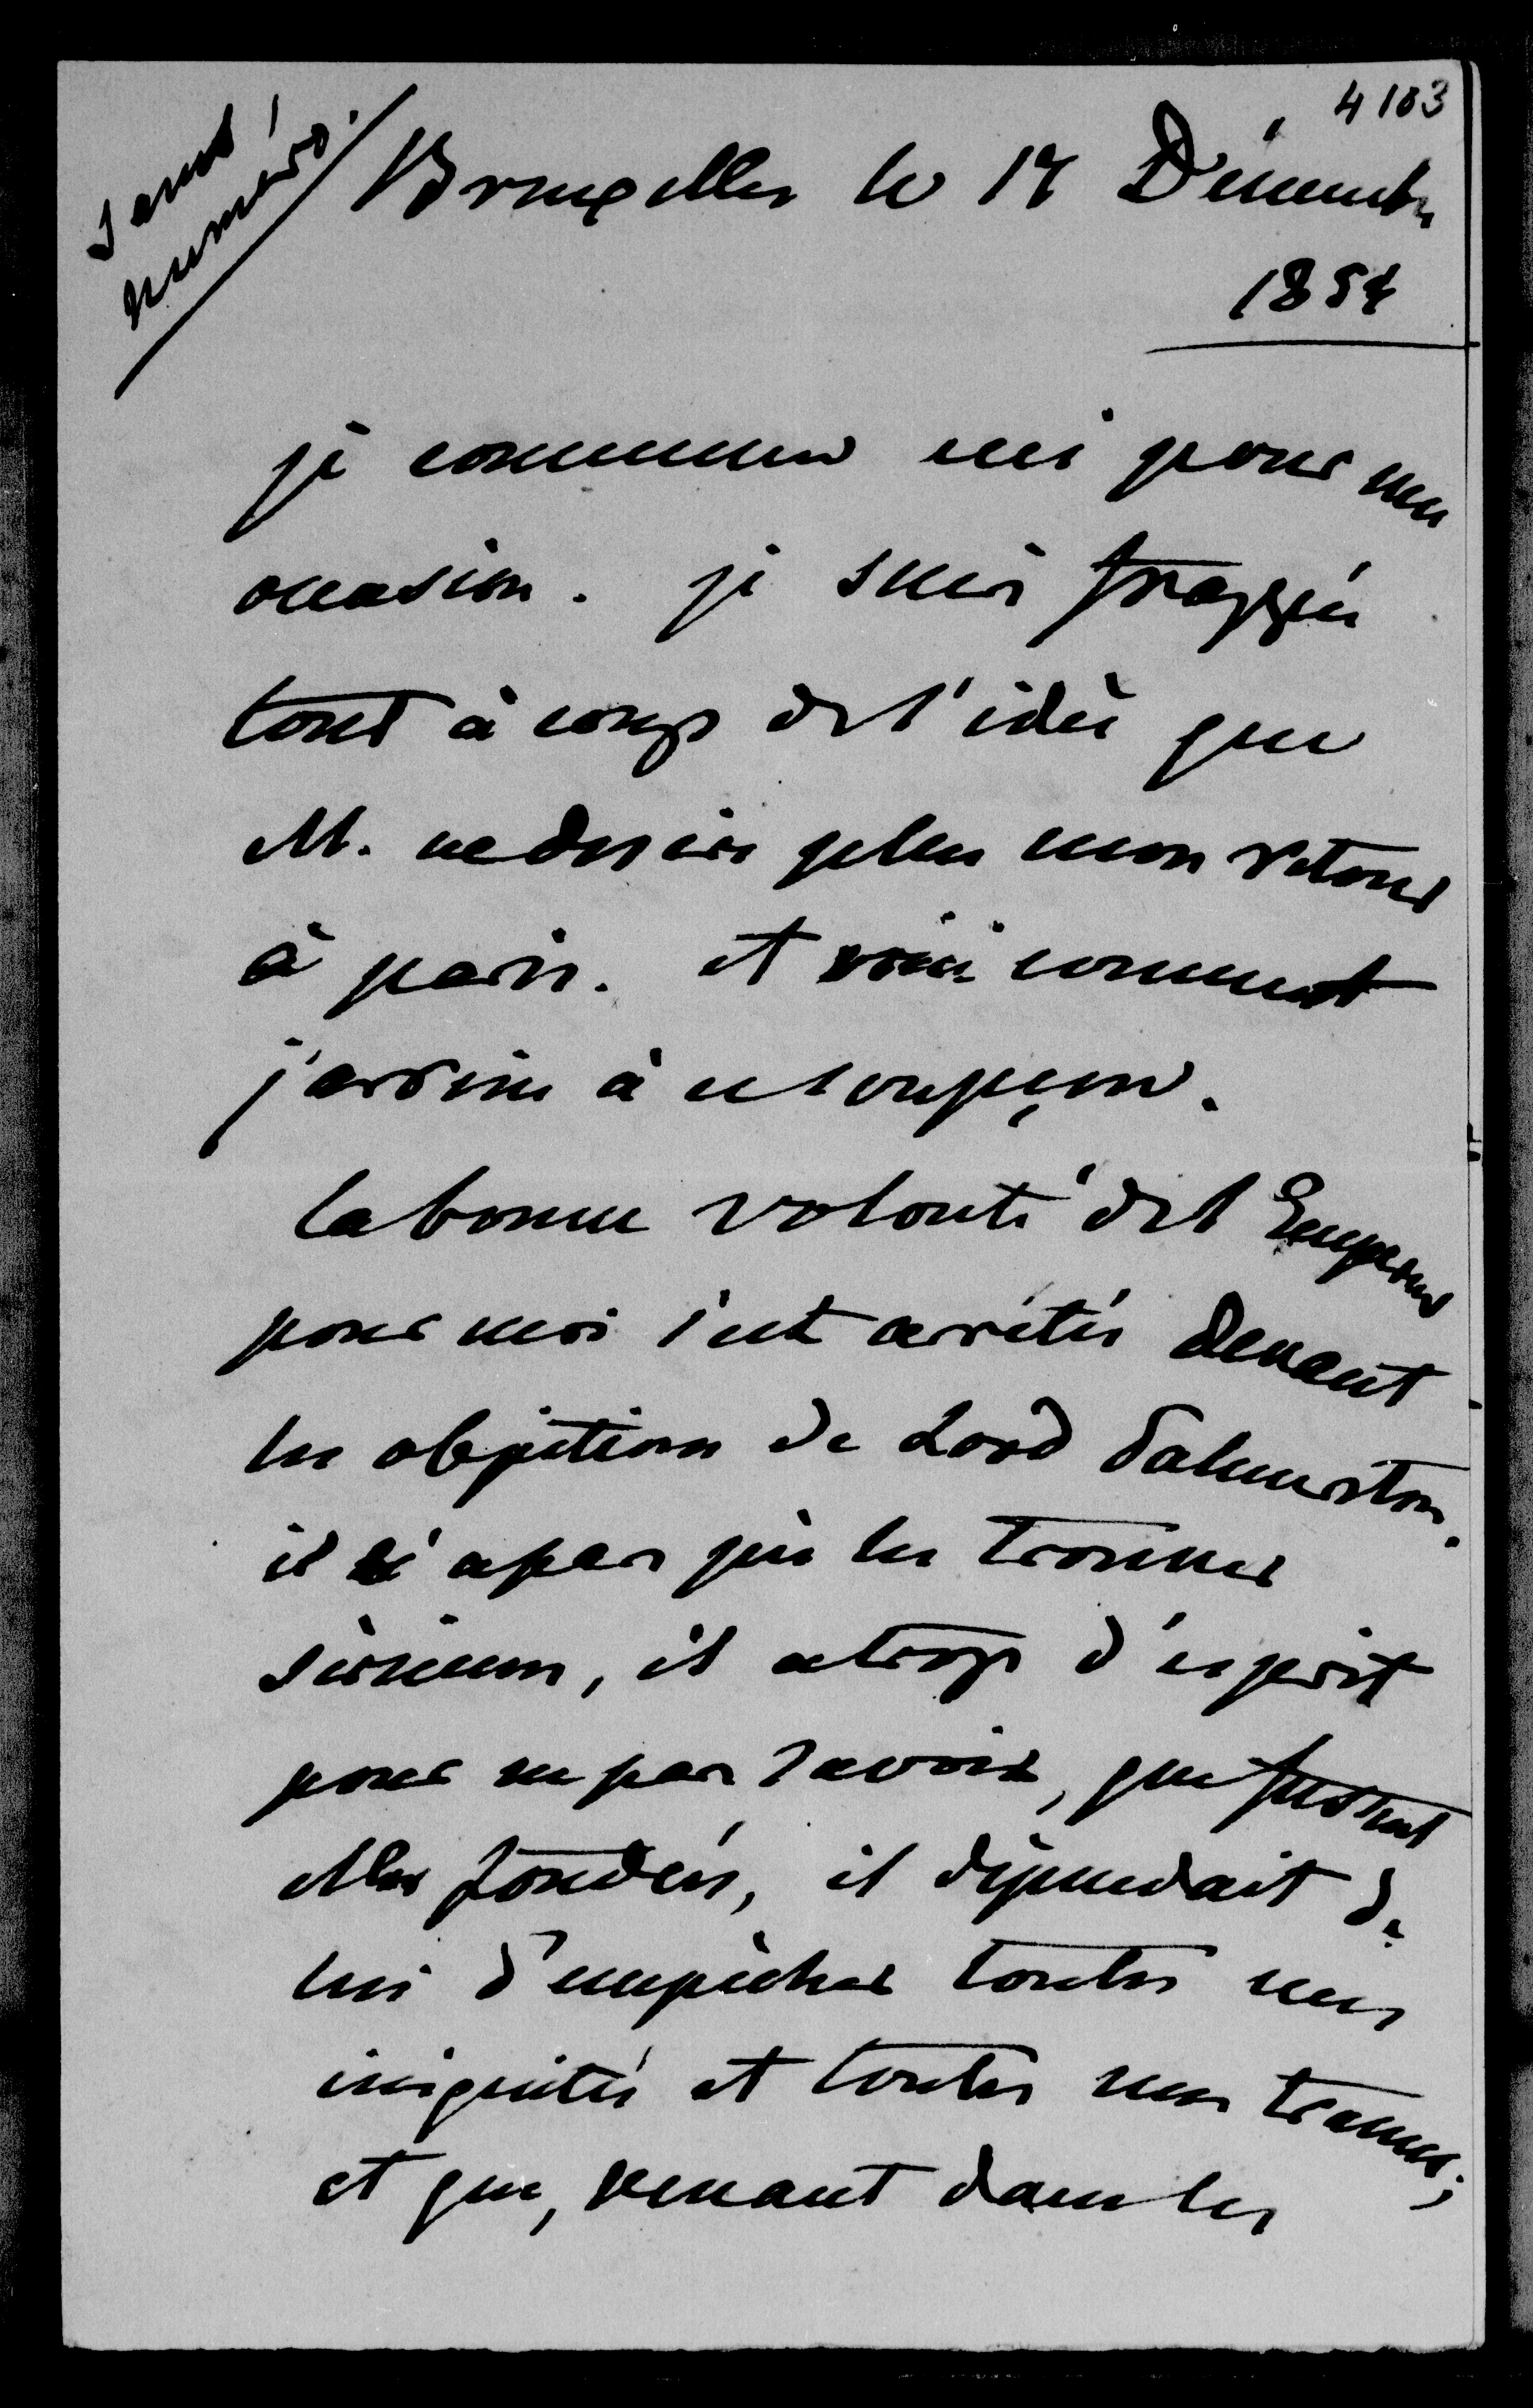 4103
sans
numéro.
Bruxelles le 17 Décembre
1854
je commence ceci pour une
occasion. je suis frappée
tout à coup de l'idée que
M. ne desire plus mon retour
à paris. et voici comment
j'arrive à ce soupçon.
la bonne volonté de l'Empereur
pour moi s'est arrêtée devant
les objections de Lord Palmerston.
il n'a pas pu les trouver
sérieuses, il a trop d'esprit
pour ne pas savoir, que fussent
elles fondées, il dépendait de
lui d'empêcher toutes mes
iniquités et toutes mes trames;
et que, venant dans les